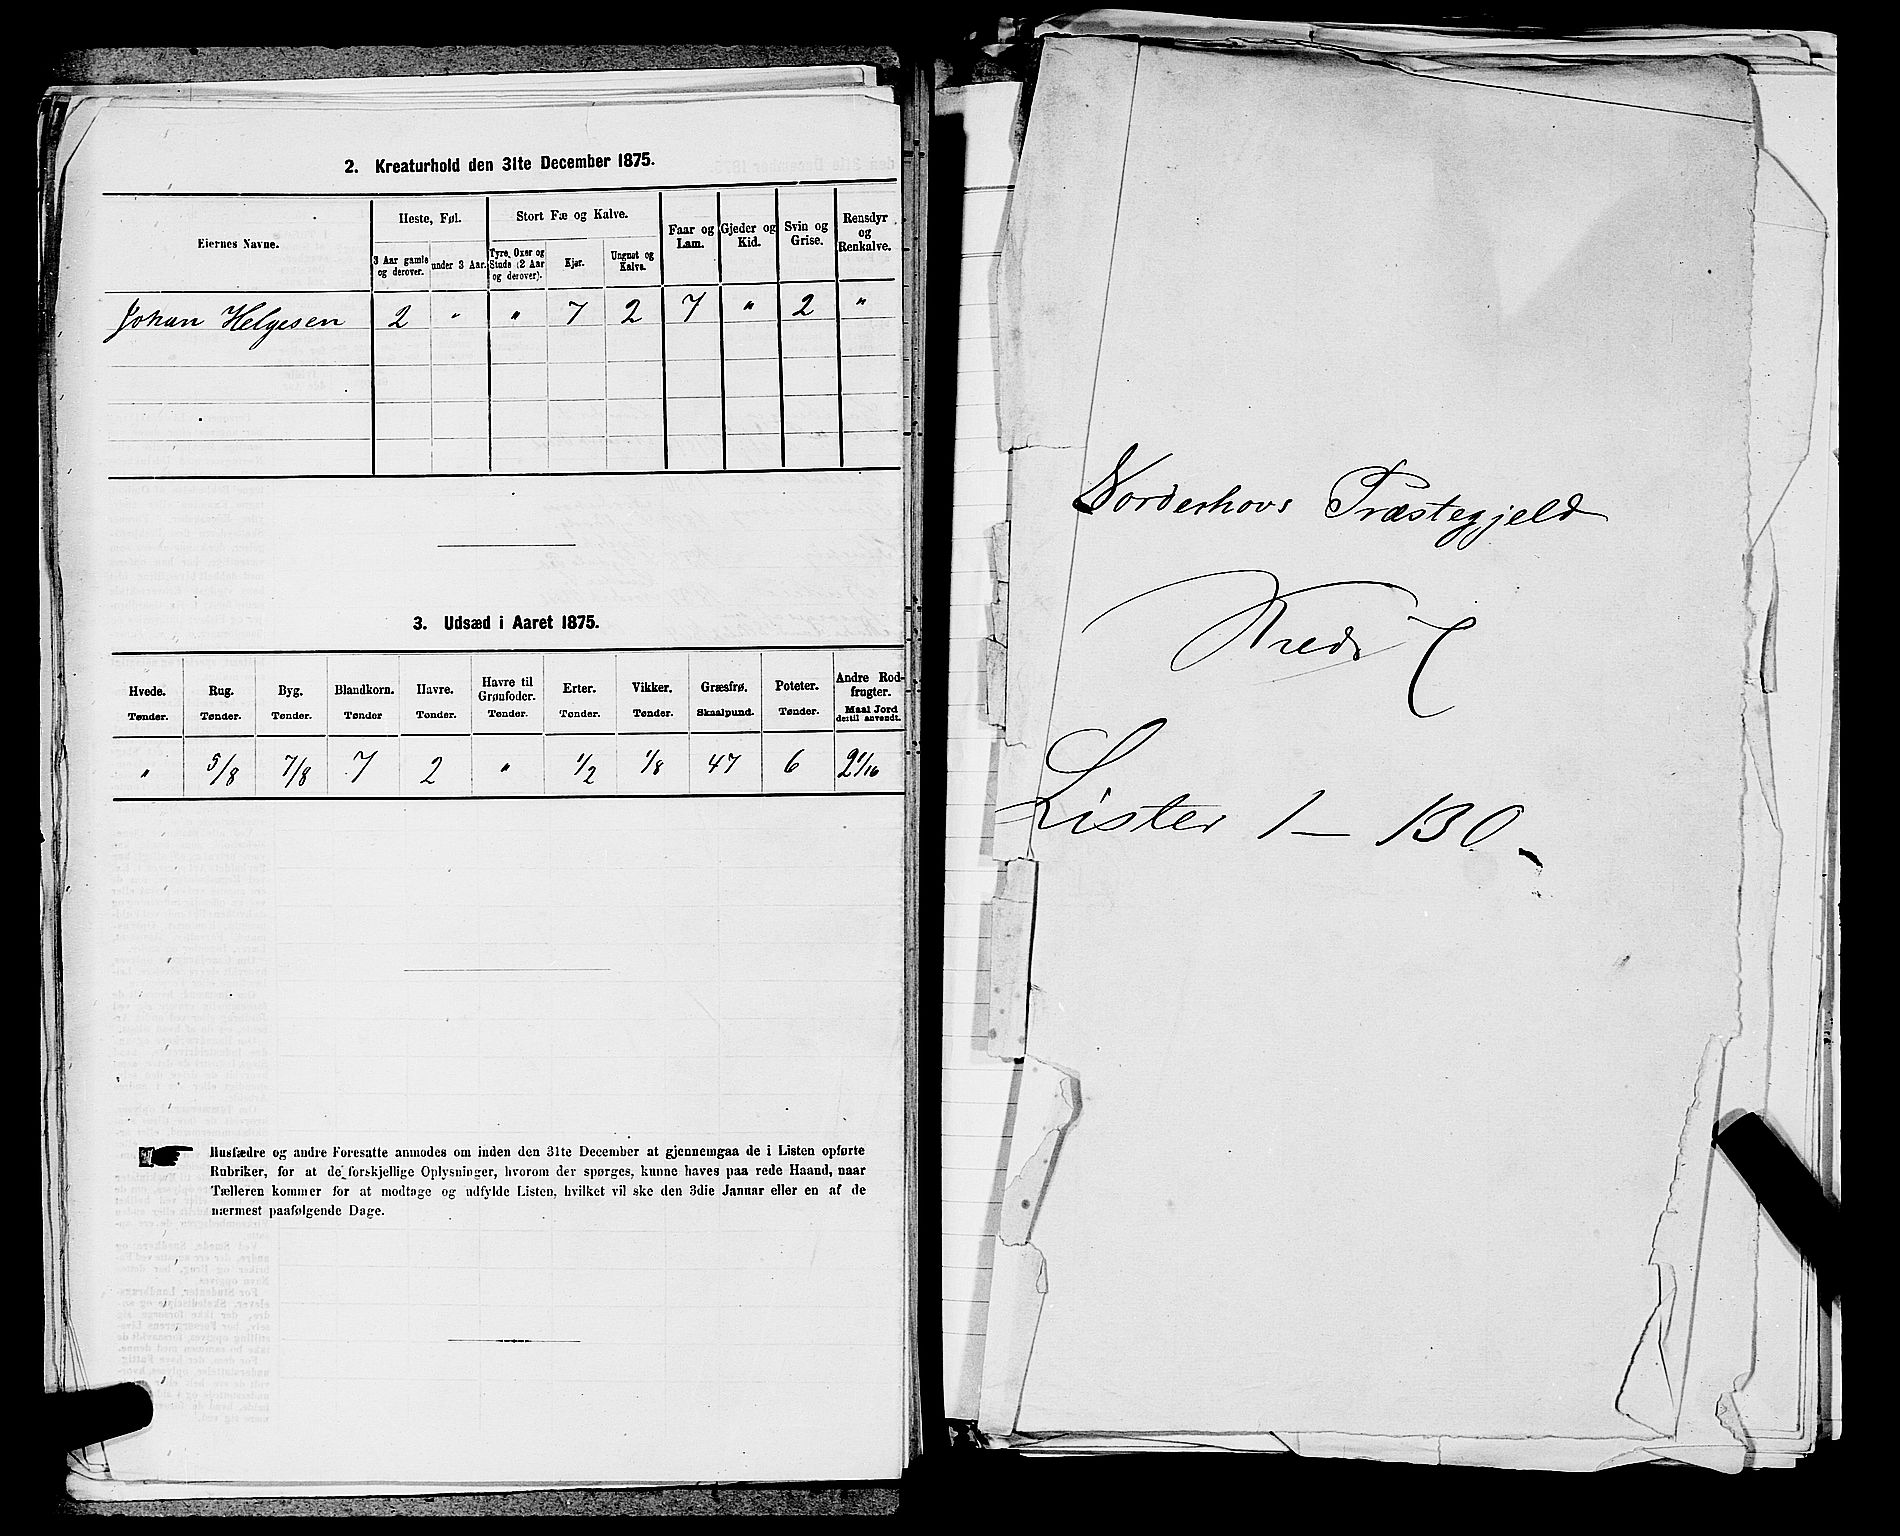 2. Kreaturhold den 31te December 1875.
Eiernes Navne.
Heste, Føl.
Stort Fæ og Kalve.
Faar og Lam.
Gjeder og Kid.
Svin og Grise.
Rensdyr og Renkalve.
3 Aar gamle og derover.
under 3 Aar.
Tyre, Oxer og Stude (2 Aar og derover).
Kjør.
Ungnøt og Kalve.
Johan Helgesen 2 " " 7 2 7 " 2 "
3. Udsæd i Aaret 1875.
Hvede. Rug. Byg. Blandkorn. Havre. Havre til Grønfoder. Erter. Vikker. Græsfrø. Poteter. Andre Rodfrugter.
Tønder. Tønder. Tønder. Tønder Tønder. Tønder. Tønder. Tønder. Skaalpund. Tønder. Maal Jord dertil anvendt.
" 5/8 7/8 7 2 " 1/2 1/8 47 6 2 1/16
Husfædre og andre Foresatte anmodes om inden den 31te December at gjennemgaa de i Listen opførte
Rubriker, for at de forskjellige Oplysninger, hvorom der spørges, kunne haves paa rede Haand, naar
Tælleren kommer for at modtage og udfylde Listen, hvilket vil ske den 3die Januar eller en af de
nærmest paafølgende Dage.
Norderhovs Præstegjeld
Kreds 7
Lister 1 – 130.